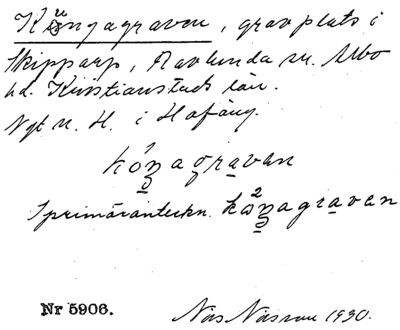 Kungagraven, gravplats i
Skipparp, Ravlunda sn. Albo
hd. Kristianstads län.
Ngt n. H. i Hafäng.
kóŋagravan
I primäranteckn. kòŋ²agravan
Nr 5906.
Nils Nilsson 1930.